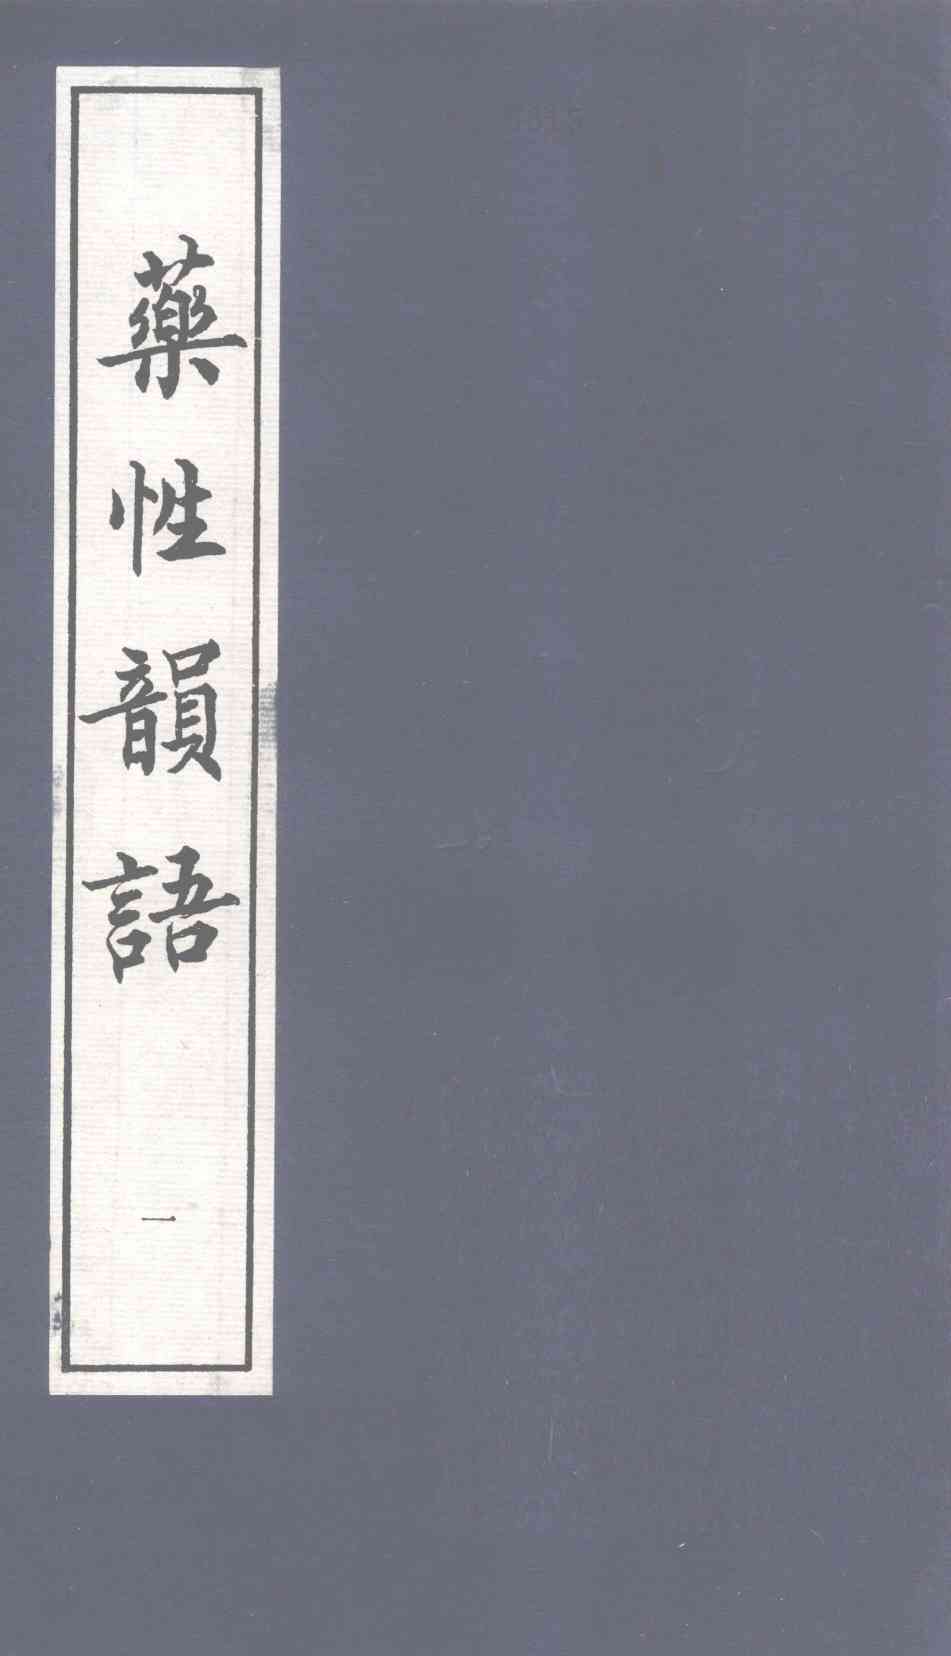 藥性韻語
一